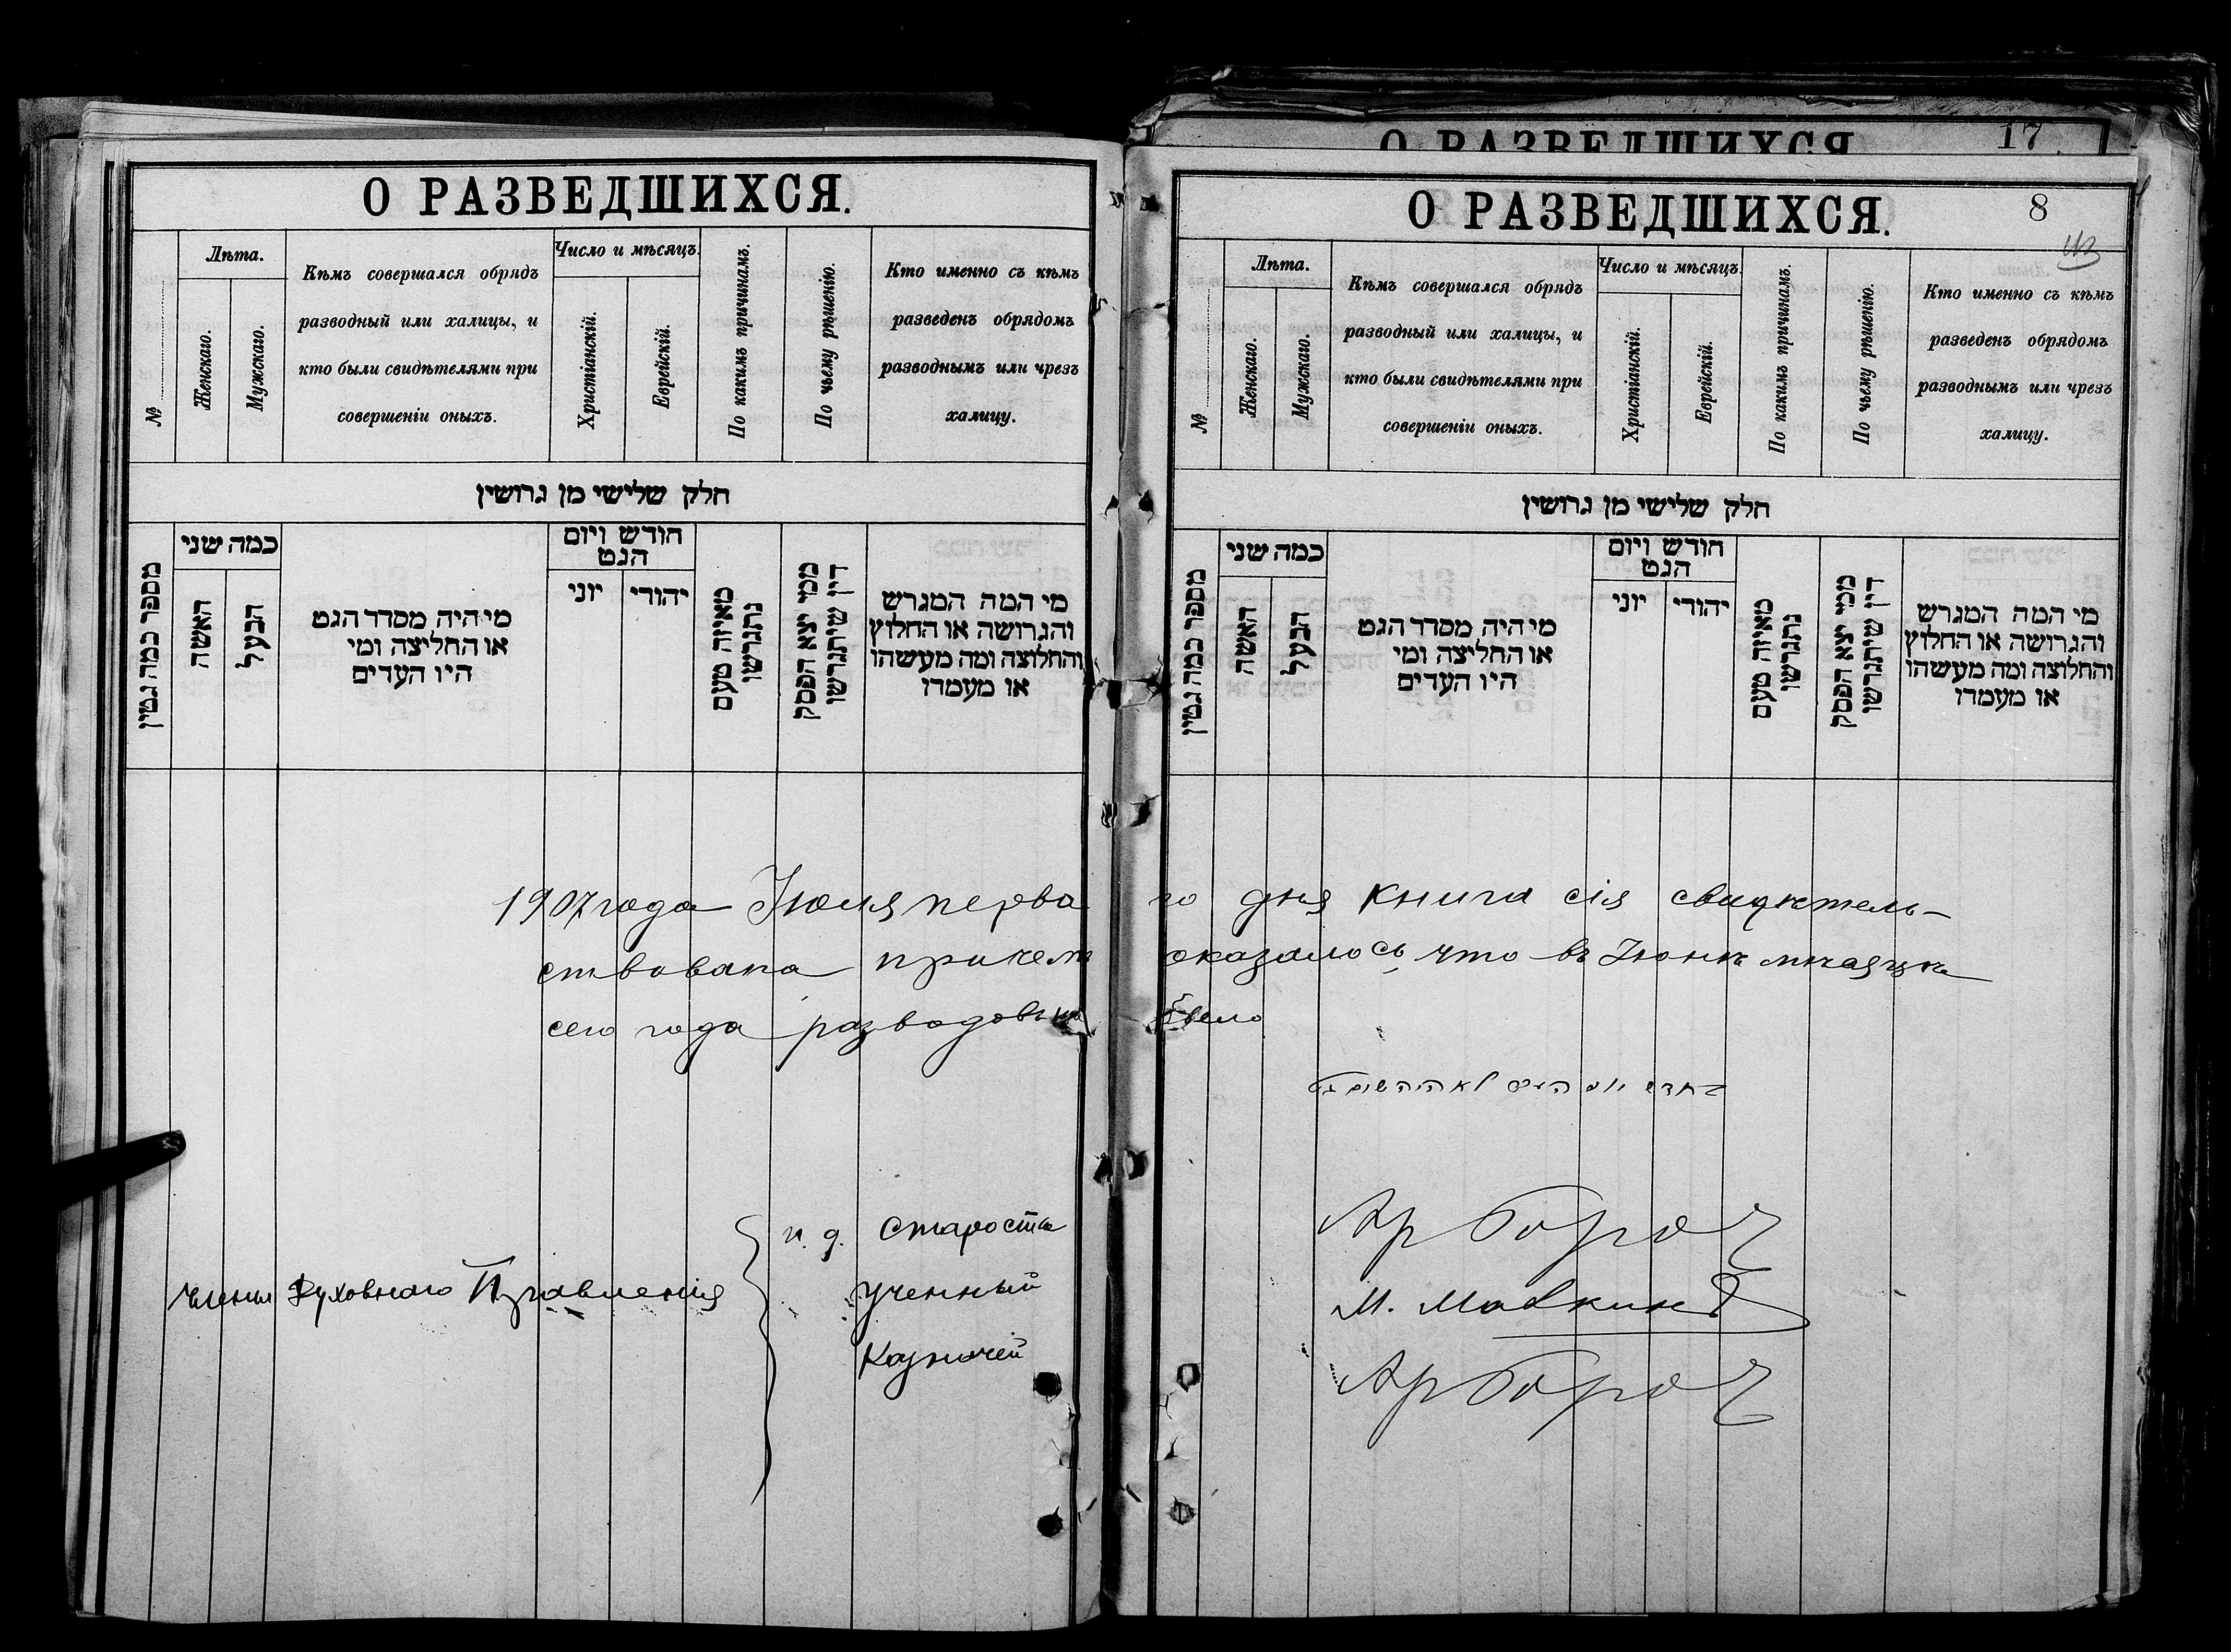 О РАЗВЕДШИХСЯ.
№
Лѣта.
Женскаго.
Мужскаго.
Кѣмъ совершался обрядъ
разводный или халицы, и
кто были свидѣтелями при
совершеніи оныхъ.
Число и мѣсяцъ.
Христіанскій.
Еврейскій.
По какимъ причинамъ.
По чьему рѣшенію.
Кто именно съ кѣмъ
разведенъ обрядомъ
разводнымъ или чрезъ
халицу.
חלק שלישי מן גרושין
מספר כמה גטין
כמה שני
האשה
הבעל
מי היה מסדר הגט
או החליצה ומי
היו העדים
חודש ויום
הגט
יוני
יהודי
מאיזה טעם
נתגרשו
ממי יצא הפסק
דין שיתגרשו
מי המה המגרש
והגרושה או החלוץ
והחלוצה ומה מעשהו
או מעמדו
О РАЗВЕДШИХСЯ
17
О РАЗВЕДШИХСЯ.
8
№
Лѣта.
Женскаго.
Мужскаго.
Кѣмъ совершался обрядъ
разводный или халицы, и
кто были свидѣтелями при
совершеніи оныхъ.
Число и мѣсяцъ.
Христіанскій.
Еврейскій.
По какимъ причинамъ.
По чьему рѣшенію.
Кто именно съ кѣмъ
разведенъ обрядомъ
разводнымъ или чрезъ
халицу.
חלק שלישי מן גרושין
מספר כמה גטין
כמה שני
האשה
הבעל
מי היה מסדר הגט
או החליצה ומי
היו העדים
חודש ויום
הגט
יוני
יהודי
מאיזה טעם
נתגרשו
ממי יצא הפסק
דין שיתגרשו
מי המה המגרש
והגרושה או החלוץ
והחלוצה ומה מעשהו
או מעמדו
1907 года Іюля перва го дня книга сія свидѣтель-
ствована причемъ оказалось что въ Іюнѣ мѣсяцѣ
сего года разводовъ не было
לא היה שום גט
и. д. Староста
Члены Духовнаго Правленія Ученный М. Мавкинъ
Казначей